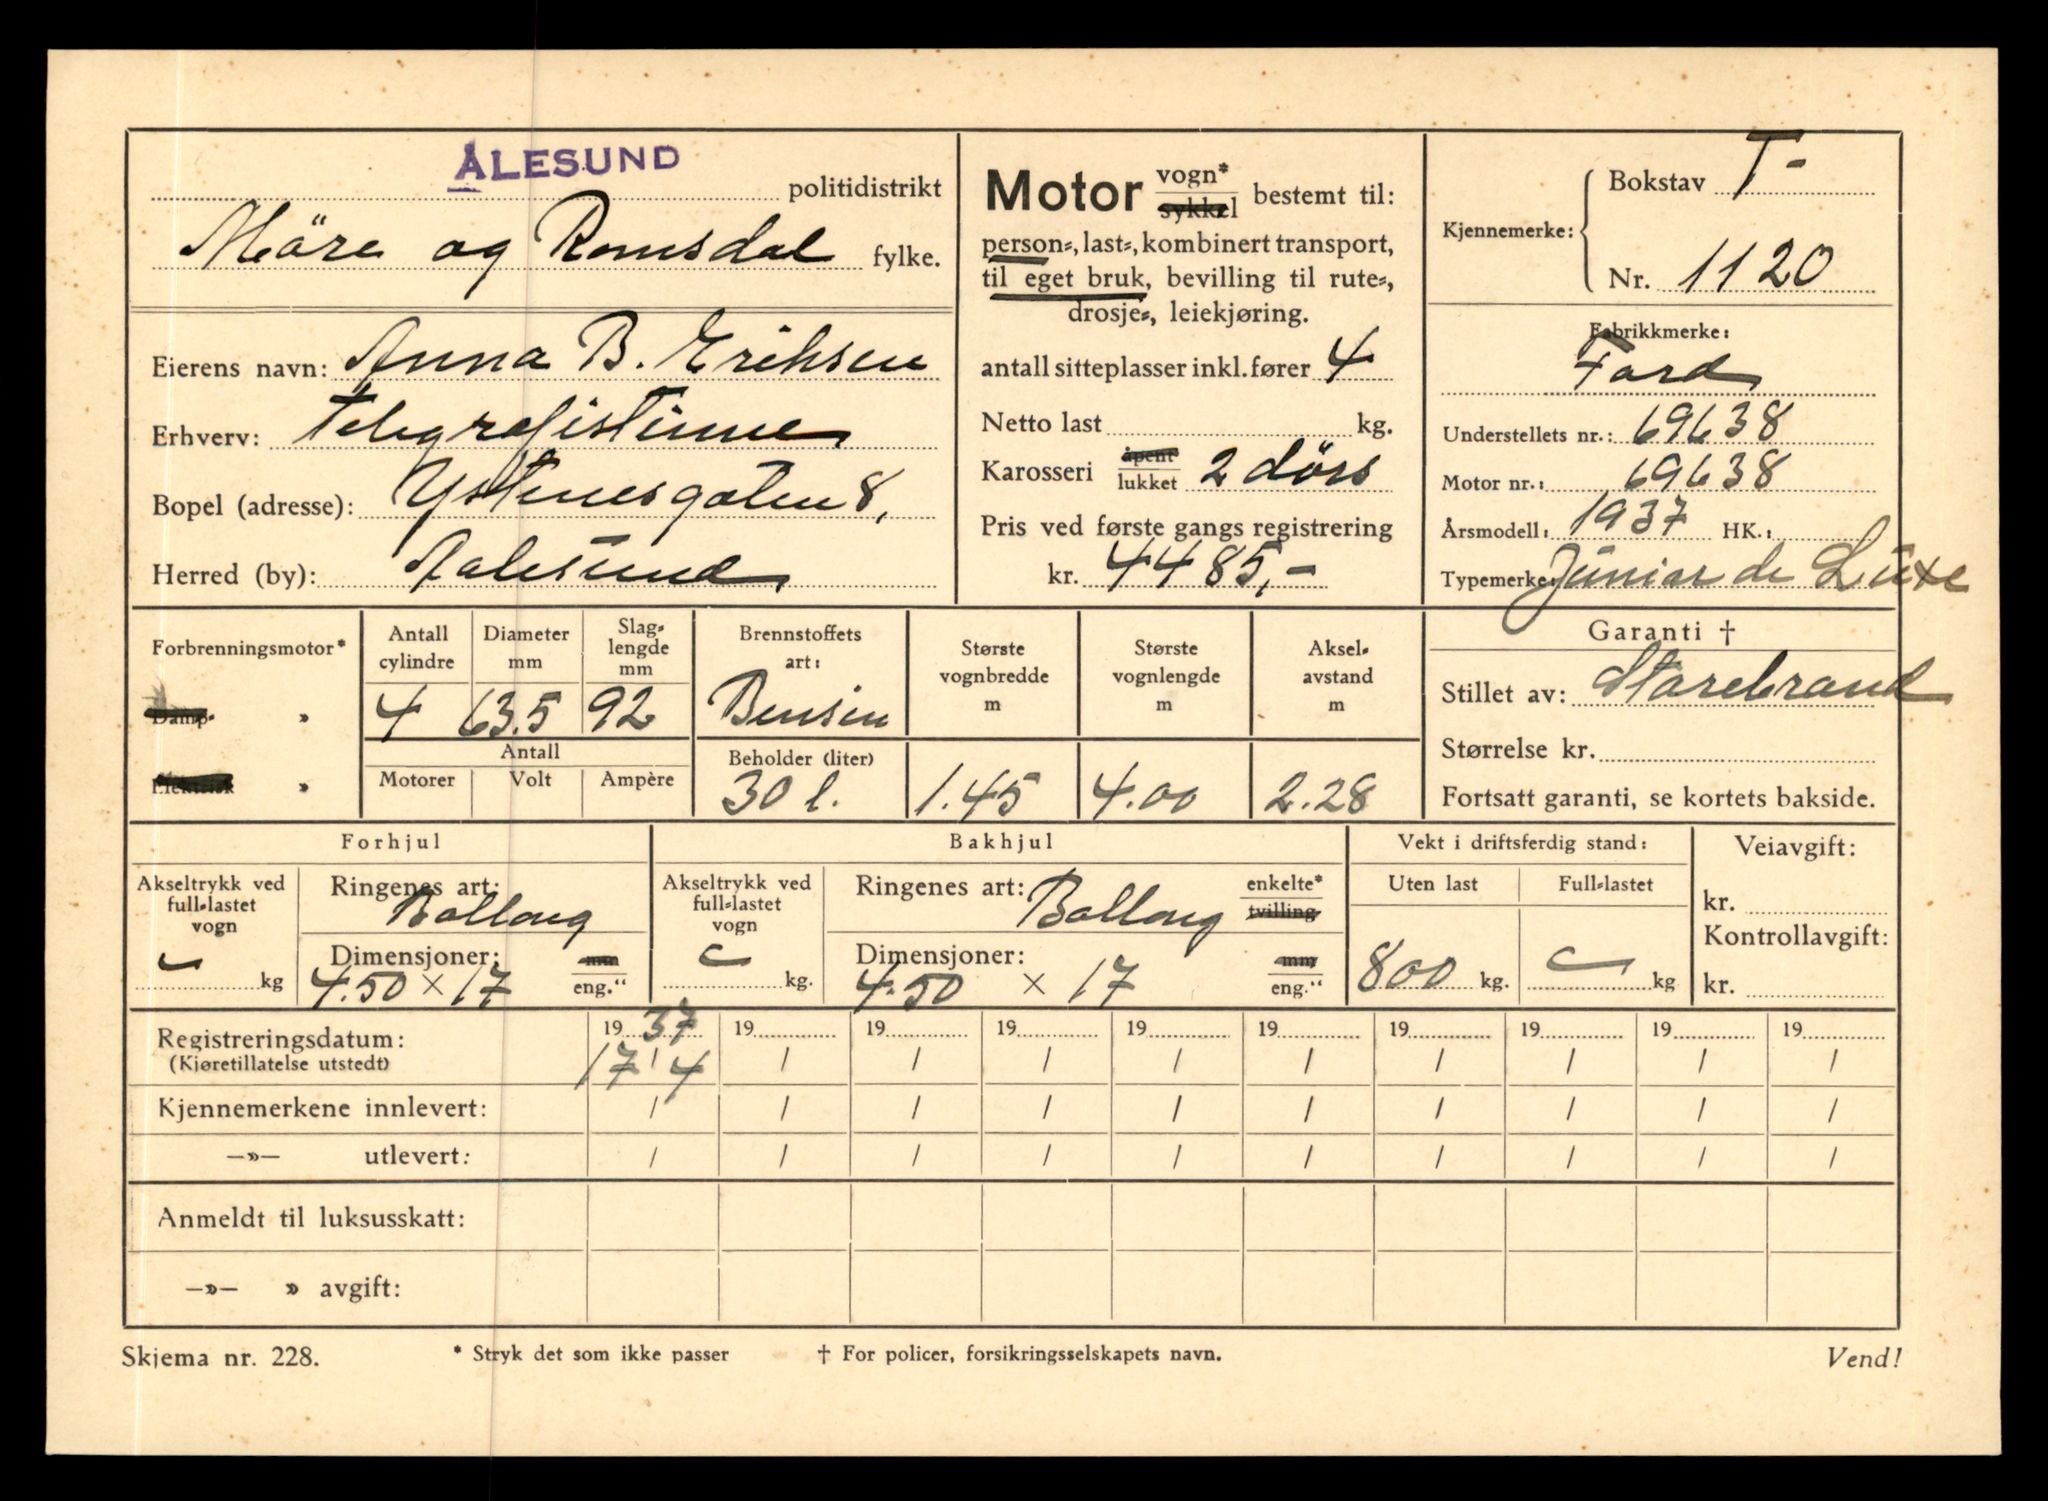 ÅLESUND
politidistrikt
Möre og Romsdal fylke.
Eierens navn: Anna B. Eriksen
Erhverv: telegrafistinne
Bopel (adresse): Ystenesgaten 8,
Herred (by): Aalesund
Motor vogn* sykkel bestemt til:
person-, last-, kombinert transport,
til eget bruk, bevilling til rute-,
drosje-, leiekjøring.
antall sitteplasser inkl. fører 4
Netto last kg.
Karosseri åpent lukket 2 dörs
Pris ved første gangs registrering
kr. 4485,-
Kjennemerke:
Bokstav T-
Nr. 1120
Fabrikkmerke:
Ford
Understellets nr.: 69638
Motor nr.: 69638
Årsmodell: 1937 HK.:
Typemerke: Junior de Luxe
Forbrenningsmotor*
Damp- »
Elektrisk »
Antall cylindre
4
Diameter mm
63.5
Slag-lengde mm
92
Antall
Motorer Volt Ampère
Brennstoffets art:
Bensin
Beholder (liter)
30 l.
Største vognbredde m
1.45
Største vognlengde m
4.00
Aksel-avstand m
2.28
Garanti †
Stillet av: Storebrand
Størrelse kr.
Fortsatt garanti, se kortets bakside.
Forhjul
Akseltrykk ved full-lastet vogn
kg
Ringenes art:
Ballong
Dimensjoner:
4.50 × 17 mm eng."
Bakhjul
Akseltrykk ved full-lastet vogn
kg.
Ringenes art: Ballong enkelte* tvilling
Dimensjoner:
4.50 × 17 mm eng."
Vekt i driftsferdig stand:
Uten last Full-lastet
800 kg. kg
Veiavgift:
kr.
Kontrollavgift:
kr.
Registreringsdatum: 1937 19 19 19 19 19 19 19 19 19
(Kjøretillatelse utstedt) 17/4 / / / / / / / / /
Kjennemerkene innlevert: / / / / / / / / / /
—»— utlevert: / / / / / / / / / /
Anmeldt til luksusskatt:
—»— » avgift:
Skjema nr. 228. * Stryk det som ikke passer † For policer, forsikringsselskapets navn. Vend!